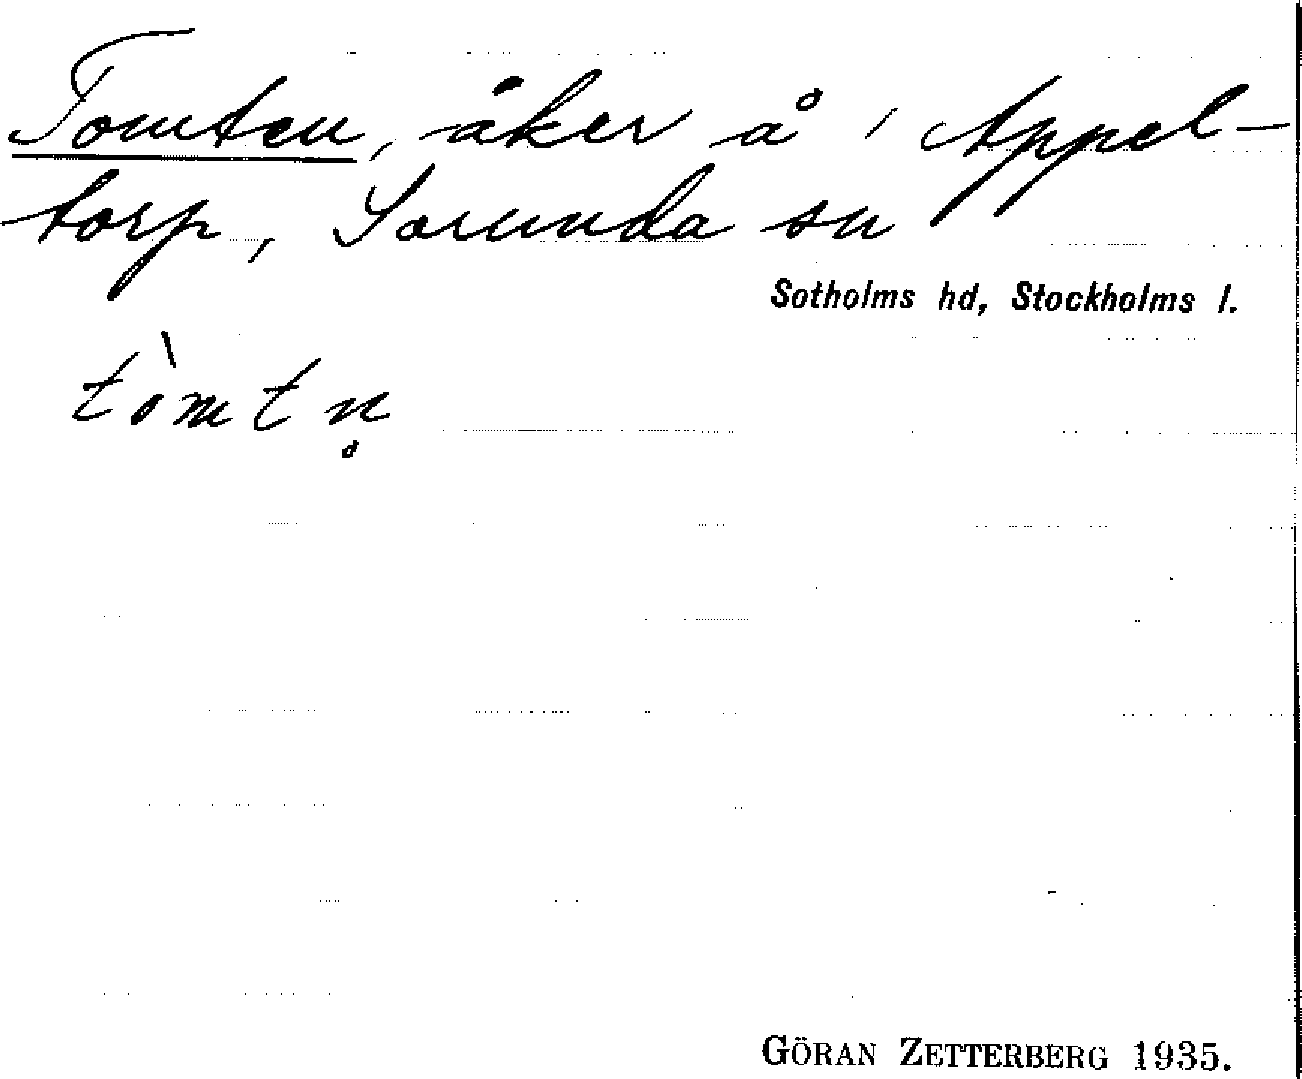 Tomten, åker å Appel-
torp, Sorunda sn
Sotholms hd, Stockholms l.
tòmtn̥
GÖRAN ZETTERBERG 1935.